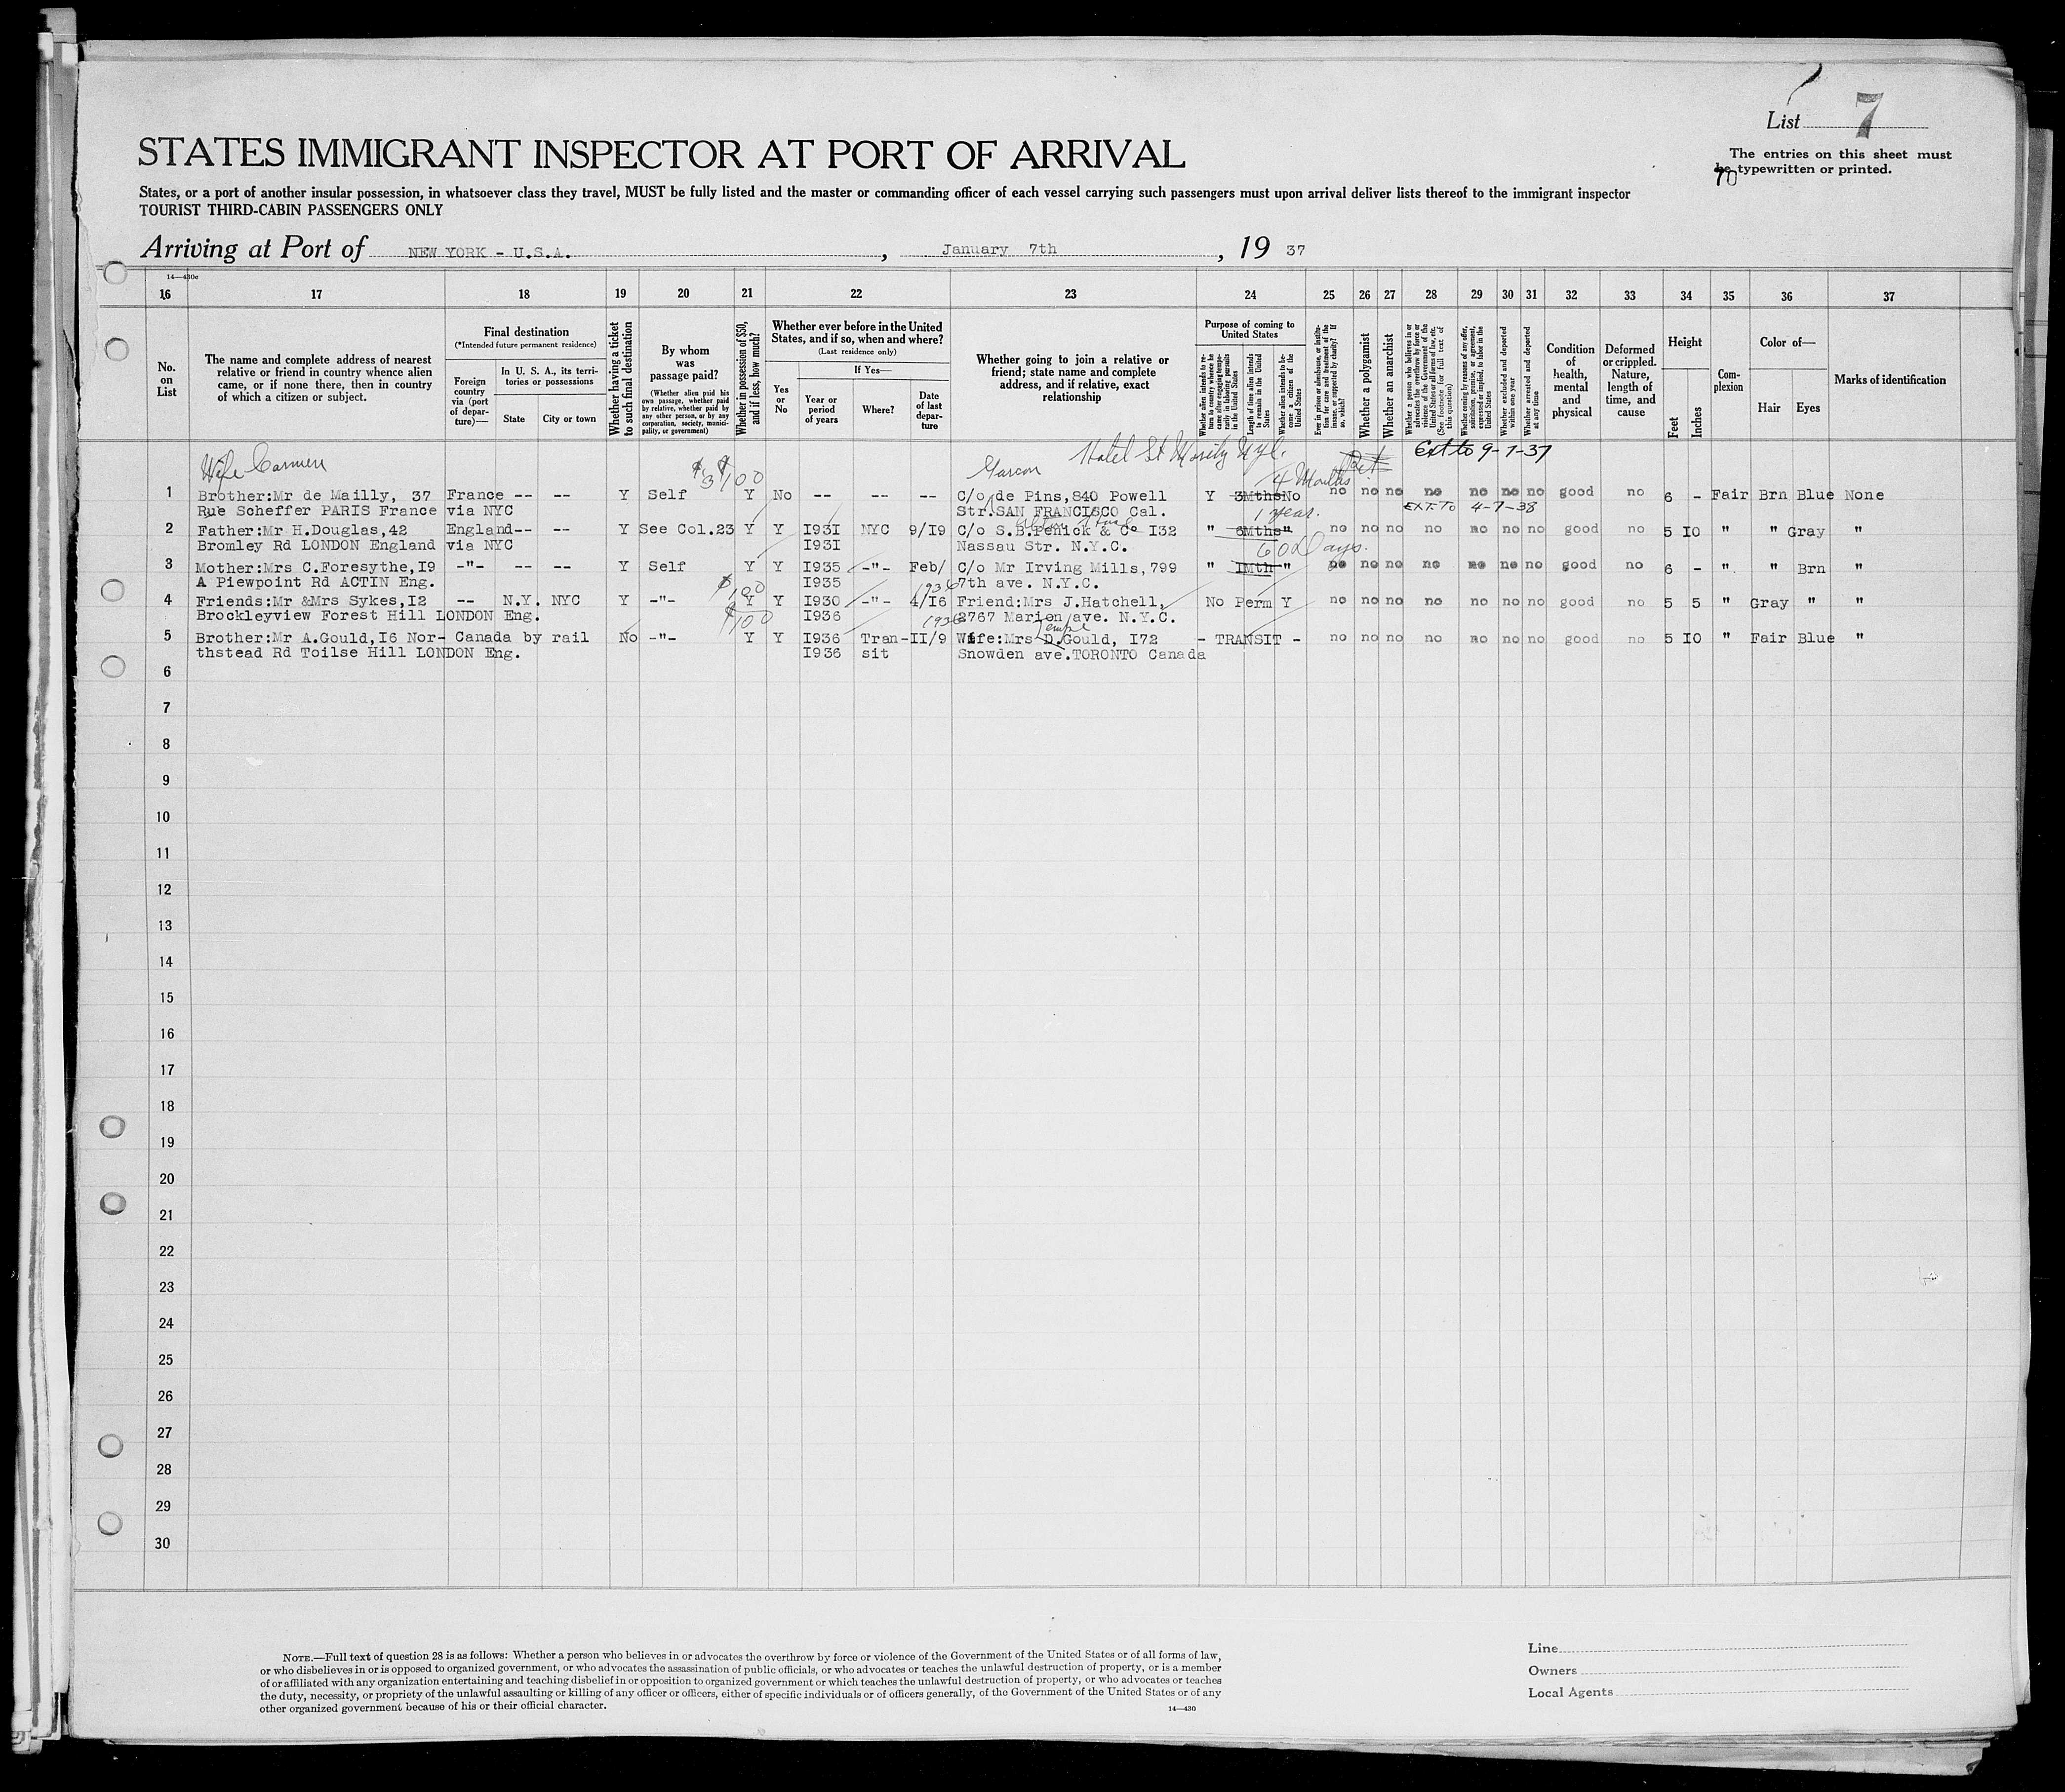 List 7
The entries on this sheet must
be typewritten or printed.
70
STATES IMMIGRANT INSPECTOR AT PORT OF ARRIVAL
States, or a port of another insular possession, in whatsoever class they travel, MUST be fully listed and the master or commanding officer of each vessel carrying such passengers must upon arrival deliver lists thereof to the immigrant inspector
TOURIST THIRD-CABIN PASSENGERS ONLY
Arriving at Port of NEW YORK - U.S.A. , January 7th , 19 37
14—430e
16 17 18 19 20 21 22 23 24 25 26 27 28 29 30 31 32 33 34 35 36 37
No. on List
The name and complete address of nearest relative or friend in country whence alien came, or if none there, then in country of which a citizen or subject.
Final destination
(*Intended future permanent residence)
Foreign country via (port of departure)—
In U. S. A., its territories or possessions
State
City or town
Whether having a ticket to such final destination
By whom was passage paid?
(Whether alien paid his own passage, whether paid by relative, whether paid by any other person, or by any corporation, society, municipality, or government)
Whether in possession of $50, and if less, how much?
Whether ever before in the United States, and if so, when and where?
(Last residence only)
Yes or No
If Yes—
Year or period of years
Where?
Date of last departure
Whether going to join a relative or friend; state name and complete address, and if relative, exact relationship
Purpose of coming to United States
Whether alien intends to return to country whence he came after engaging temporarily in laboring pursuits in the United States
Length of time alien intends to remain in the United States
Whether alien intends to become a citizen of the United States
Ever in prison or almshouse, or institution for care and treatment of the insane, or supported by charity? If so, which?
Whether a polygamist
Whether an anarchist
Whether a person who believes in or advocates the overthrow by force or violence of the Government of the United States or all forms of law, etc. (See footnote for full text of this question)
Whether coming by reasons of any offer, solicitation, promise, or agreement, expressed or implied, to labor in the United States
Whether excluded and deported within one year
Whether arrested and deported at any time
Condition of health, mental and physical
Deformed or crippled. Nature, length of time, and cause
Height
Feet
Inches
Complexion
Color of—
Hair
Eyes
Marks of identification
Wife Carmen $100 Garcon Hotel St Moritz NYC. 4 Months Ext to 9-7-37
1 Brother:Mr de Mailly, 37 France -- -- Y Self Y No -- -- -- C/o de Pins,840 Powell Y 3Mths No no no no no no no no good no 6 - Fair Brn Blue None
Rue Scheffer PARIS France via NYC Str.SAN FRANCISCO Cal. 1 year. EXT. TO 4-7-38
2 Father:Mr H.Douglas,42 England-- -- Y See Col.23 Y Y I93I NYC 9/I9 C/o S.B.Penick & Co I32 " 6Mths " no no no no no no no good no 5 IO " " Gray "
Bromley Rd LONDON England via NYC I93I Nassau Str. N.Y.C. 60 Days.
3 Mother:Mrs C.Foresythe,I9 -"- -- -- Y Self Y Y I935 -"- Feb/ C/o Mr Irving Mills,799 " IMth " no no no no no no no good no 6 - " " Brn "
A Piewpoint Rd ACTIN Eng. $100 I935 1936 7th ave. N.Y.C.
4 Friends:Mr &Mrs Sykes,I2 -- N.Y. NYC Y -"- Y Y I930 -"- 4/I6 Friend:Mrs J.Hatchell, No Perm Y no no no no no no no good no 5 5 " Gray " "
Brockleyview Forest Hill LONDON Eng. $100 I936 1936 2767 Marion ave. N.Y.C.
5 Brother:Mr A.Gould,I6 Nor- Canada by rail No -"- Y Y I936 Tran- II/9 Wife:Mrs D.Gould, I72 - TRANSIT - no no no no no no no good no 5 IO " Fair Blue "
thstead Rd Toilse Hill LONDON Eng. I936 sit Snowden ave.TORONTO Canada
6
7
8
9
10
11
12
13
14
15
16
17
18
19
20
21
22
23
24
25
26
27
28
29
30
NOTE.—Full text of question 28 is as follows: Whether a person who believes in or advocates the overthrow by force or violence of the Government of the United States or of all forms of law,
or who disbelieves in or is opposed to organized government, or who advocates the assassination of public officials, or who advocates or teaches the unlawful destruction of property, or is a member
of or affiliated with any organization entertaining and teaching disbelief in or opposition to organized government or which teaches the unlawful destruction of property, or who advocates or teaches
the duty, necessity, or propriety of the unlawful assaulting or killing of any officer or officers, either of specific individuals or of officers generally, of the Government of the United States or of any
other organized government because of his or their official character.
14—430
Line
Owners
Local Agents